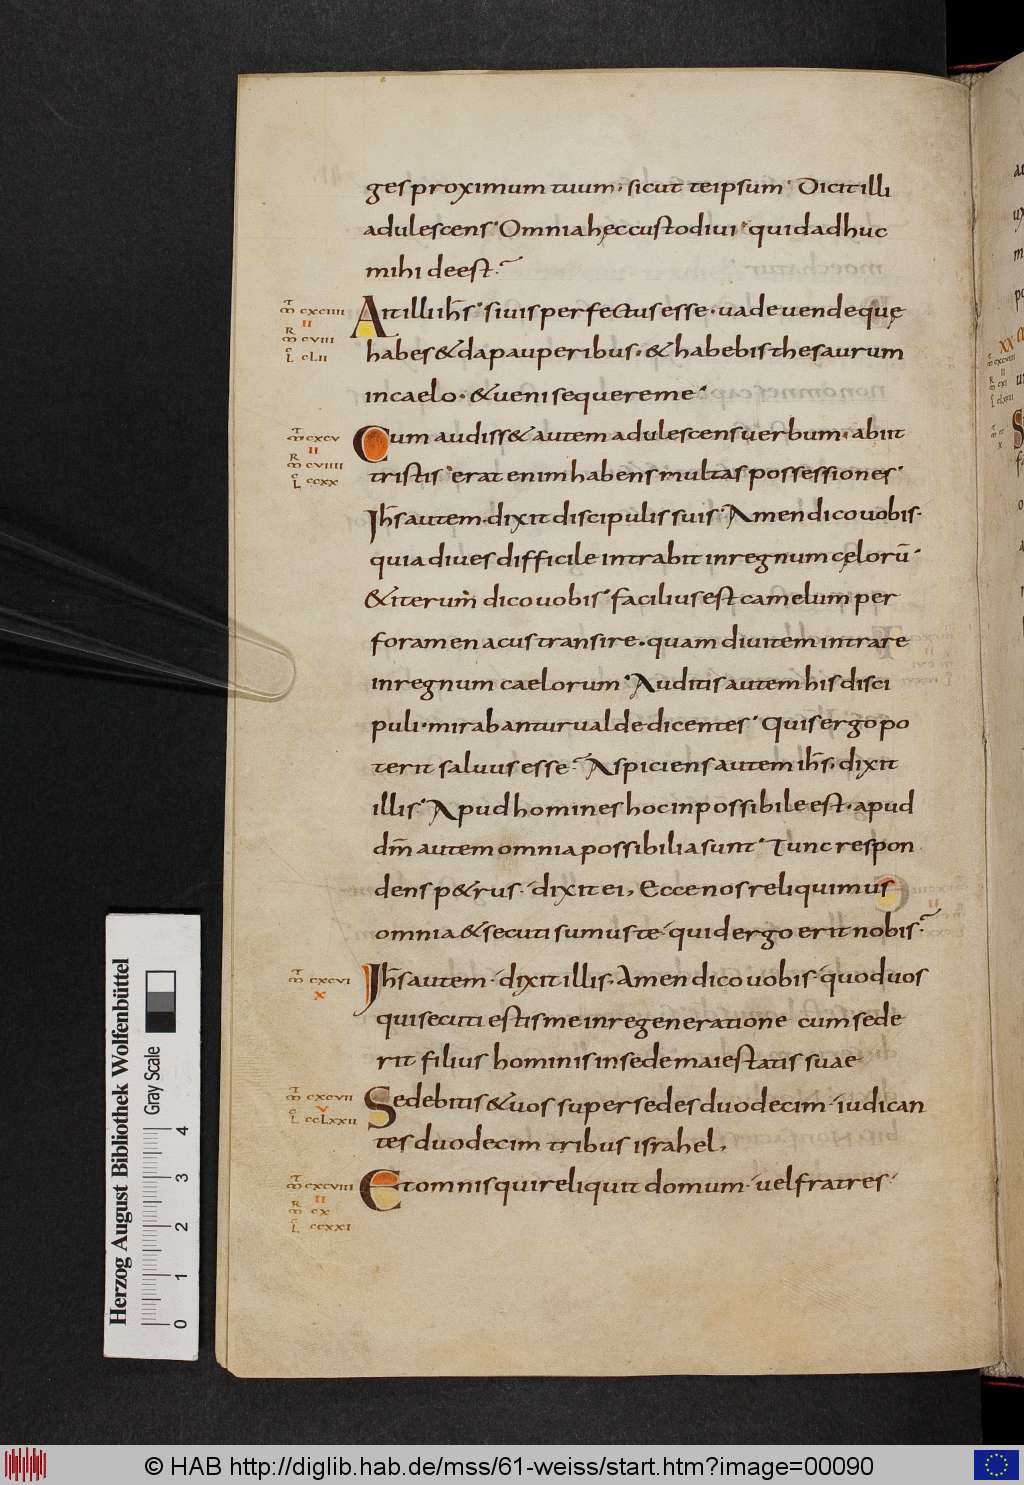 ges proximum tuum, sicut teipsum· Dicit illi
adulescens· Omnia hęc custodivi· quid adhuc
mihi deest·?
Ait illi ih̄s· si vis perfectus esse· vade vende quę
habes & da pauperibus· & habebis thesaurum
in caelo· & veni sequere me·
Cum audiss& autem adulescens verbum· abiit
tristis· erat enim habens multas possessiones·
Jh̄s autem· dixit discipulis suis· Amen dico vobis·
quia dives difficile intrabit in regnum cęlorū·
& iterum dico vobis· facilius est camelum per
foramen acus transire· quam divitem intrare
in regnum caelorum· Auditis autem his disci
puli· mirabantur valde dicentes· Quis ergo po
terit salvus esse·? Aspiciens autem ih̄s, dixit
illis· Apud homines hoc inpossibile est· apud
dm̄ autem omnia possibilia sunt· Tunc respon
dens p&rus· dixit ei, Ecce nos reliquimus
omnia & secuti sumus te· quid ergo erit nobis·?
Jh̄s autem· dixit illis, Amen dico vobis· quod vos
qui secuti estis me in regeneratione cum sede
rit filius hominis in sede maiestatis suae
Sedebitis & vos super sedes duodecim· iudican
tes duodecim tribus israhel,
Et omnis qui reliquit domum· vel fratres·
cxciiii
II
cviii
clii
cxcv
II
cviiii
ccxx
cxcvi
x
cxcvii
v
cclxxii
cxcviii
II
cx
ccxxi
Herzog August Bibliothek Wolfenbüttel
Gray Scale
0 1 2 3 4
© HAB http://diglib.hab.de/mss/61-weiss/start.htm?image=00090